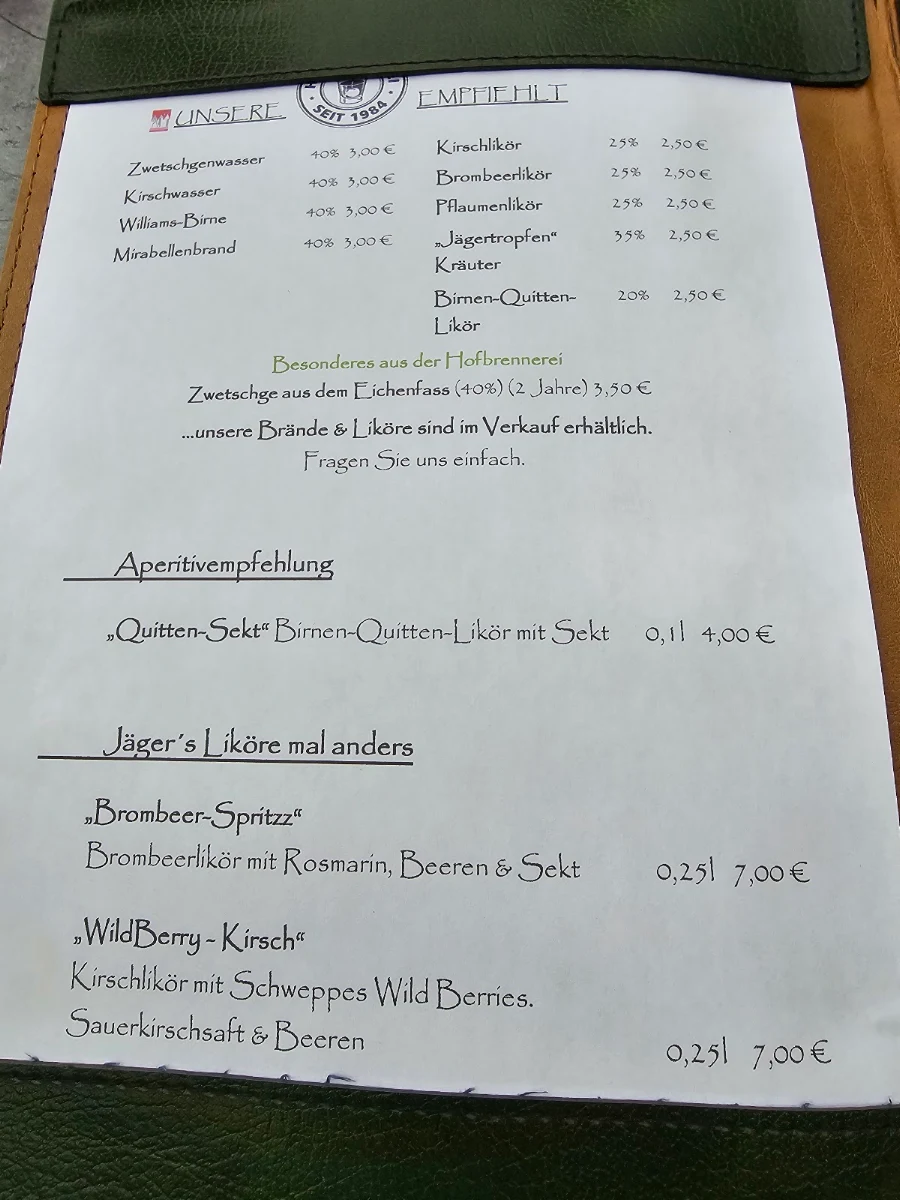 UNSERE
SEIT 1984
EMPFIEHLT
Zwetschgenwasser 40% 3,00 €
Kirschwasser 40% 3,00 €
Williams-Birne 40% 3,00 €
Mirabellenbrand 40% 3,00 €
Kirschlikör 25% 2,50 €
Brombeerlikör 25% 2,50 €
Pflaumenlikör 25% 2,50 €
„Jägertropfen“ 35% 2,50 €
Kräuter
Birnen-Quitten- 20% 2,50 €
Likör
Besonderes aus der Hofbrennerei
Zwetschge aus dem Eichenfass (40%) (2 Jahre) 3,50 €
...unsere Brände & Liköre sind im Verkauf erhältlich.
Fragen Sie uns einfach.
Aperitivempfehlung
„Quitten-Sekt“ Birnen-Quitten-Likör mit Sekt 0,1l 4,00 €
Jäger´s Liköre mal anders
„Brombeer-Spritzz“
Brombeerlikör mit Rosmarin, Beeren & Sekt 0,25l 7,00 €
„WildBerry - Kirsch“
Kirschlikör mit Schweppes Wild Berries.
Sauerkirschsaft & Beeren 0,25l 7,00 €